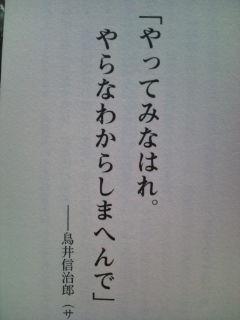 「やってみなはれ。
やらなわからしまへんで」
――鳥井信治郎（サ